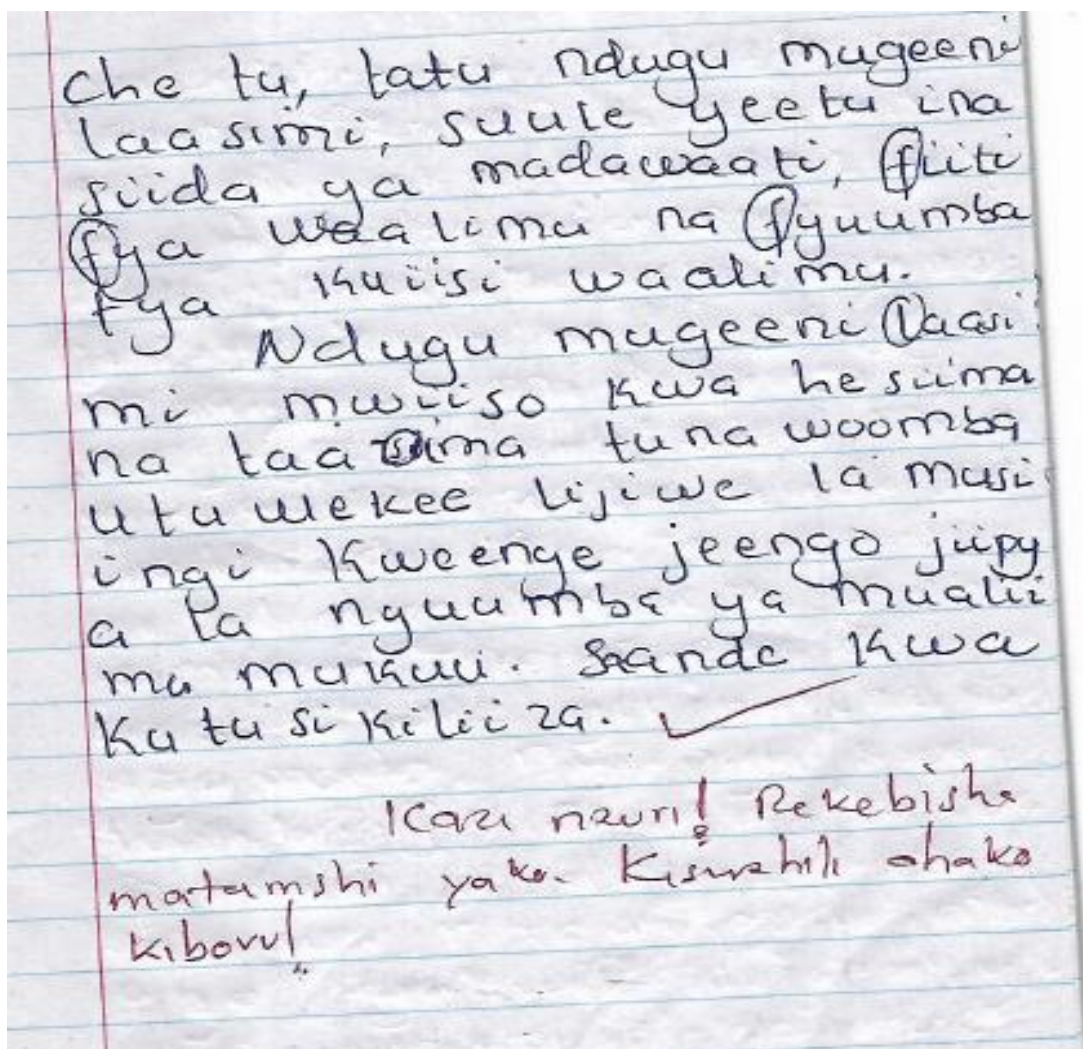 Che tu, tatu ndugu mugeeni
laasimi, suule yeetu ina
siida ya madawaati, fiiti
fya waalimu na fyuumba
fya kuiisi waalimu.
Ndugu mugeeni laasi
mi mwiiso kwa hesiima
na taasima tuna woomba
utuwekee lijiwe la musi
ingi kweenge jeengo jiipy
a la nguumba ya mualii
mu mukuu. Saande kwa
ku tu si kilii za.
Kazi nzuri! Rekebisha
matamshi yako. Kiswahili chako
kibovu!